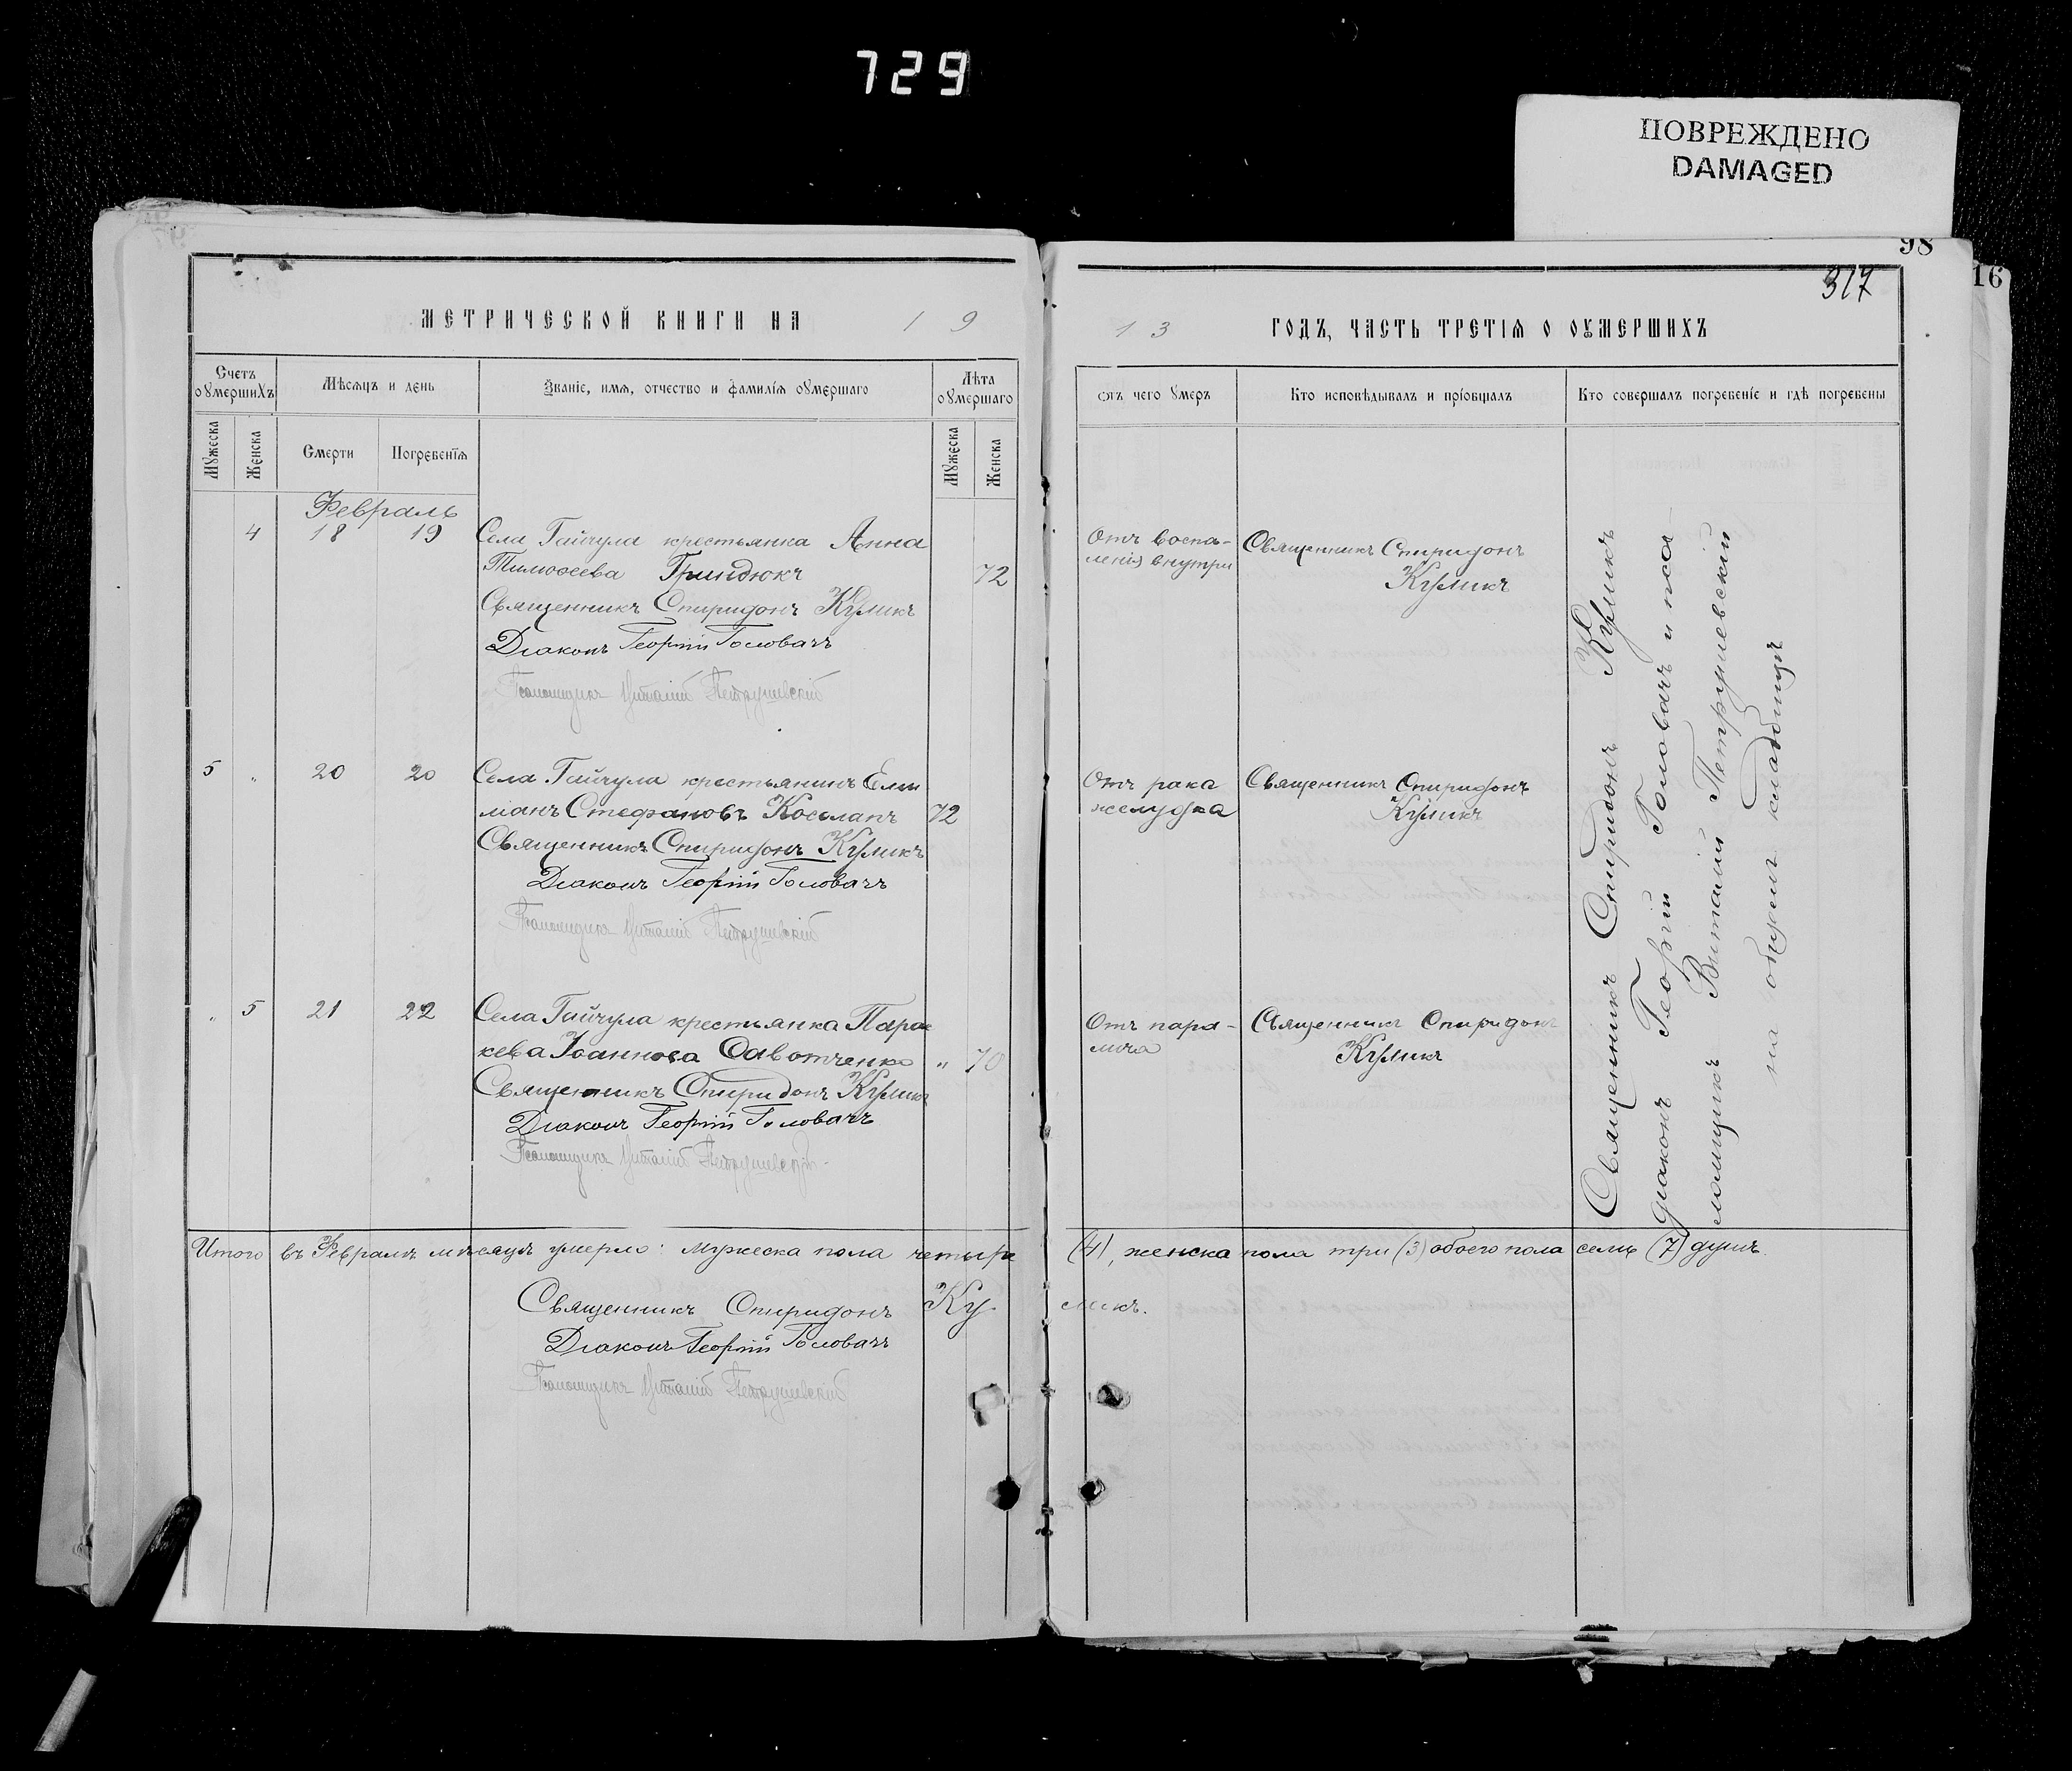 729
ПОВРЕЖДЕНО
DAMAGED
98
16
317
МЕТРИЧЕСКОЙ КНИГИ НА 19
13 ГОДЪ, ЧАСТЬ ТРЕТІѦ О ОУМЕРШИХЪ
Счетъ оумершихъ
Мѣсяцъ и день
Званіе, имя, отчество и фамилія оумершаго
Лѣта оумершаго
Отъ чего умеръ
Кто исповѣдывалъ и пріобщалъ
Кто совершалъ погребеніе и гдѣ погребены
Мужеска
Женска
Смерти
Погребенія
Мужеска
Женска
Февраль
4 18 19 Села Гайчула крестьянка Анна
Тимоѳеева Гриндюкъ 72
Священникъ Спиридонъ Куликъ
Діаконъ Георгій Головачъ
Псаломщикъ Виталій Петрушевскій
Отъ воспа-
ленія внутри
Священникъ Спиридонъ
Куликъ
5 „ 20 20 Села Гайчула крестьянинъ
Стефановъ 72
Священникъ Спиридонъ Куликъ
Діаконъ Георгій Головачъ
Псаломщикъ Виталій Петрушевскій
Отъ рака
желудка
Священникъ Спиридонъ
Куликъ
„ 5 21 22 Села Гайчула крестьянка Парас
кева Іоаннова Савотченко „ 70
Священникъ Спиридонъ Куликъ
Діаконъ Георгій Головачъ
Псаломщикъ Виталій Петрушевскій
Отъ пара-
лича
Священникъ Спиридонъ
Куликъ
Священникъ Спиридонъ Куликъ
діаконъ Георгій Головачъ и пса-
ломщикъ Виталій Петрушевскій
на общемъ кладбищѣ
Итого въ Февралѣ мѣсяцѣ умерло: мужеска пола четыре (4), женска пола три (3) обоего пола семь (7) душъ.
Священникъ Спиридонъ Ку-
ликъ.
Діаконъ Георгій Головачъ
Псаломщикъ Виталій Петрушевскій